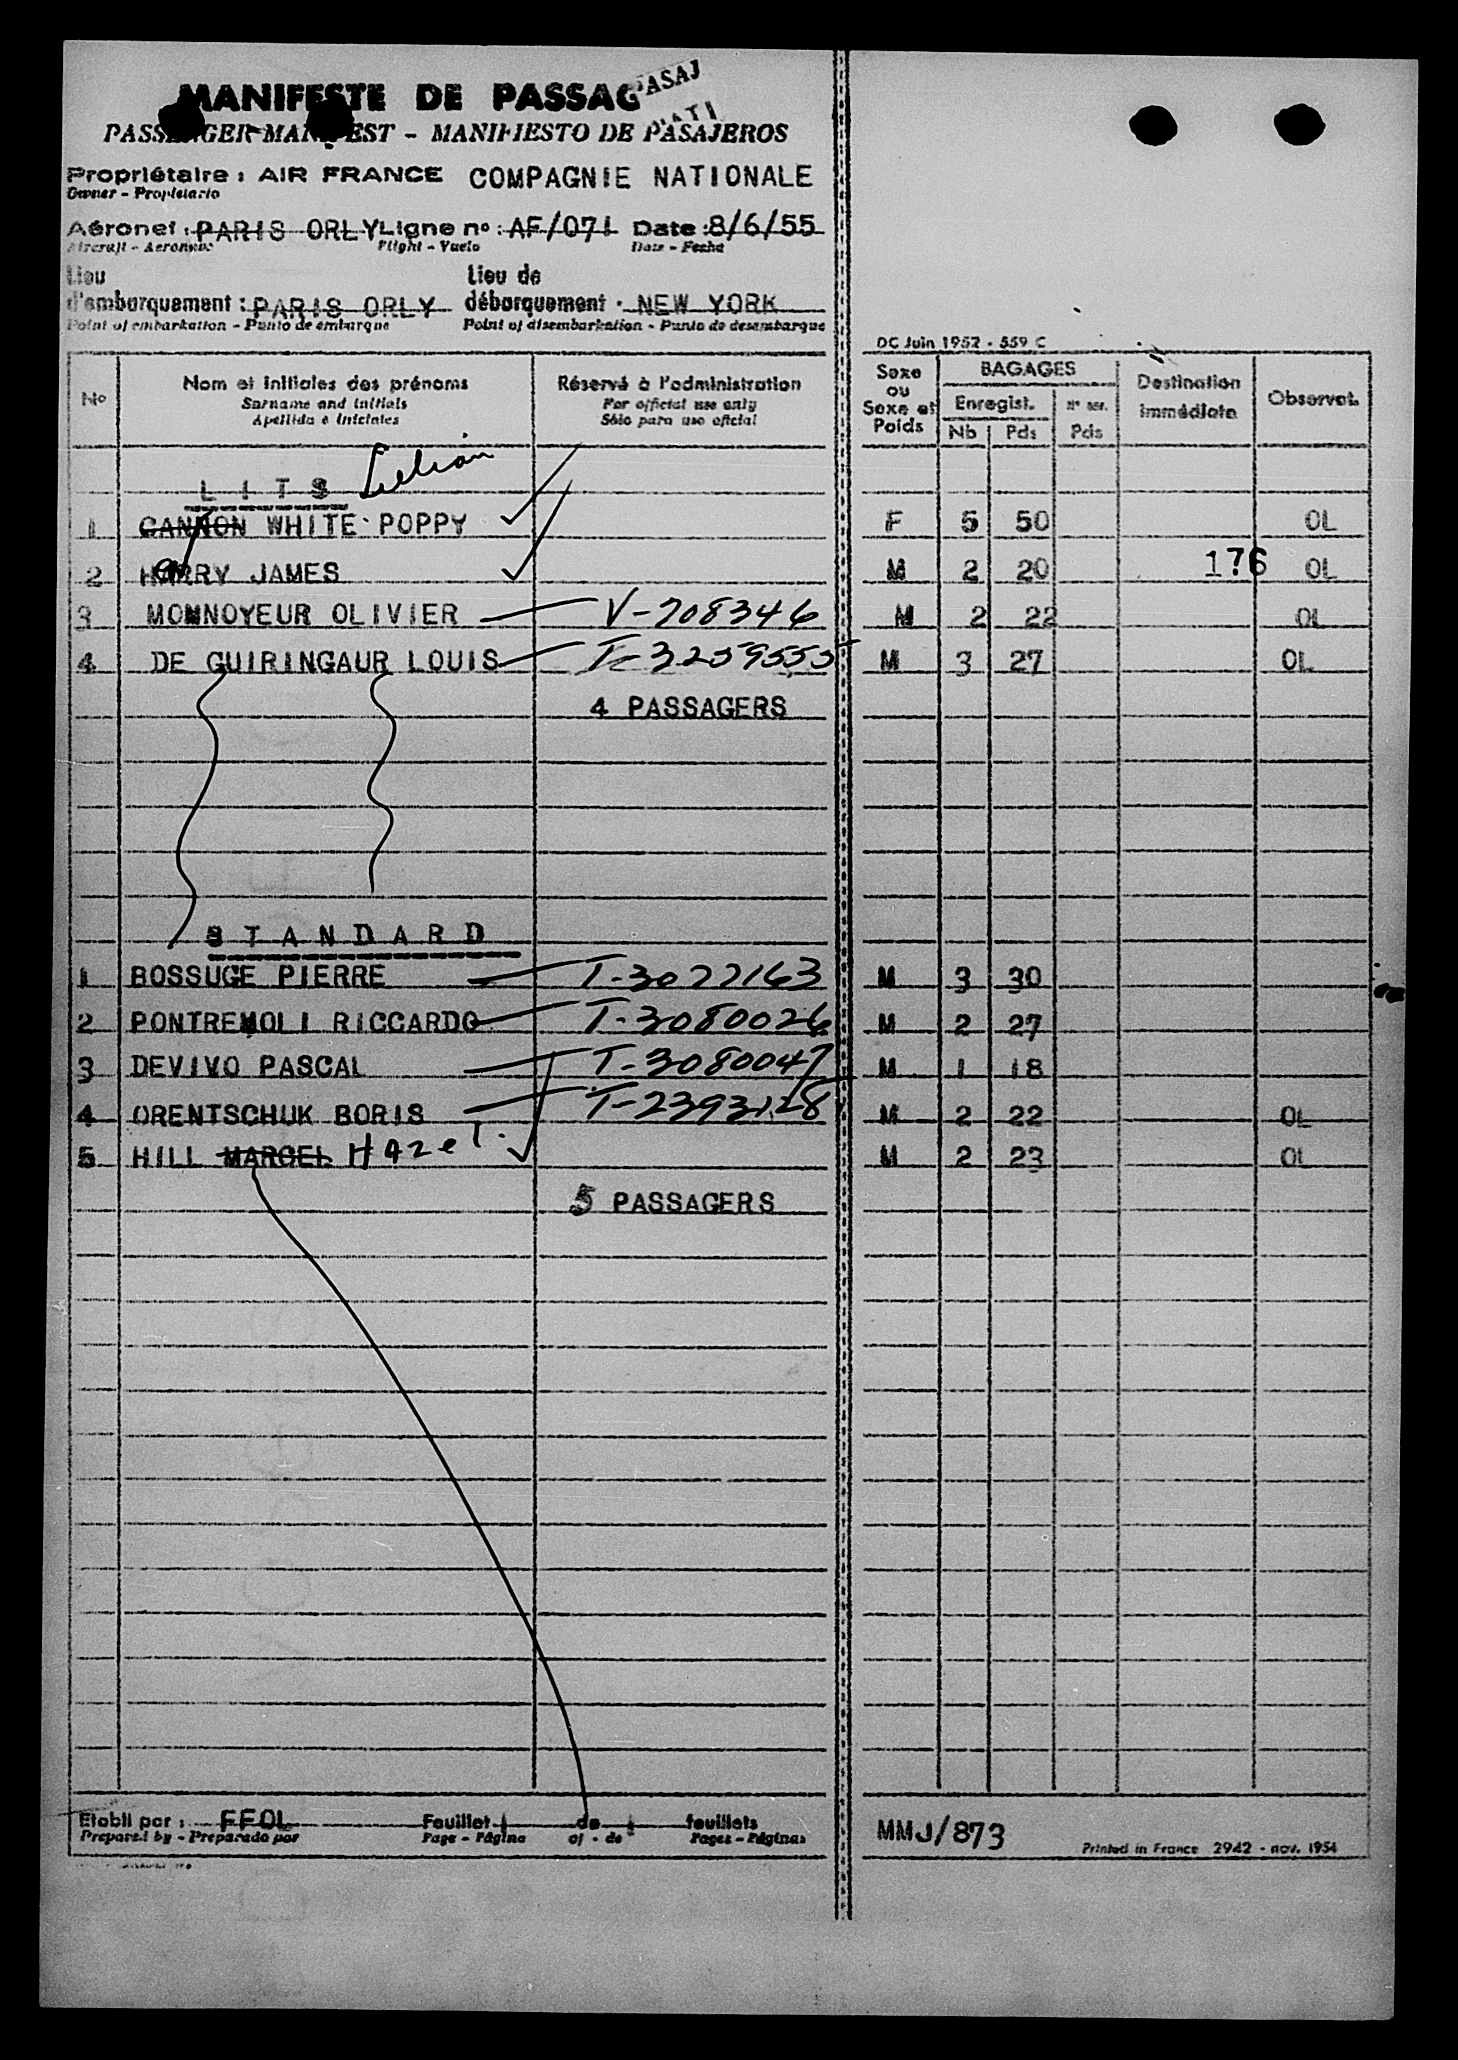 MANIFESTE DE PASSAG
PASAJ
PASSENGER MANIFEST - MANIFIESTO DE PASAJEROS
Propriétaire : AIR FRANCE COMPAGNIE NATIONALE
Owner - Propietario
Aéronef : PARIS ORLY Ligne no : AF/071 Date : 8/6/55
Aircraft - Aeronave Flight - Vuelo Date - Fecha
Lieu Lieu de
d'embarquement : PARIS ORLY débarquement : NEW YORK
Point of embarkation - Punto de embarque Point of disembarkation - Punto de desembarque
DC Juin 1952 - 559 C
No Nom et initiales des prénoms Réservé à l'administration Sexe ou Sexe et Poids BAGAGES Destination immédiate Observat.
Surname and initials For official use only Enregist.
Apellido e iniciales Sólo para uso oficial Nb Pds Pds
LITS Lilian
1 CANNON WHITE POPPY F 5 50 OL
2 HARRY JAMES M 2 20 176 OL
3 MONNOYEUR OLIVIER V-708346 M 2 22 OL
4 DE GUIRINGAUR LOUIS T-3259555 M 3 27 OL
4 PASSAGERS
STANDARD
1 BOSSUGE PIERRE T-3077163 M 3 30
2 PONTREMOLI RICCARDO T-3080026 M 2 27
3 DEVIVO PASCAL T-3080047 M 1 18
4 ORENTSCHUK BORIS T-2393128 M 2 22 OL
5 HILL MARCEL Hazel. M 2 23 OL
5 PASSAGERS
Etabli par : FFOL Feuillet 1 de 1 feuillets
Prepared by - Preparado por Page - Página of - de Pages - Páginas
MMJ/873
Printed in France 2942 - nov. 1954